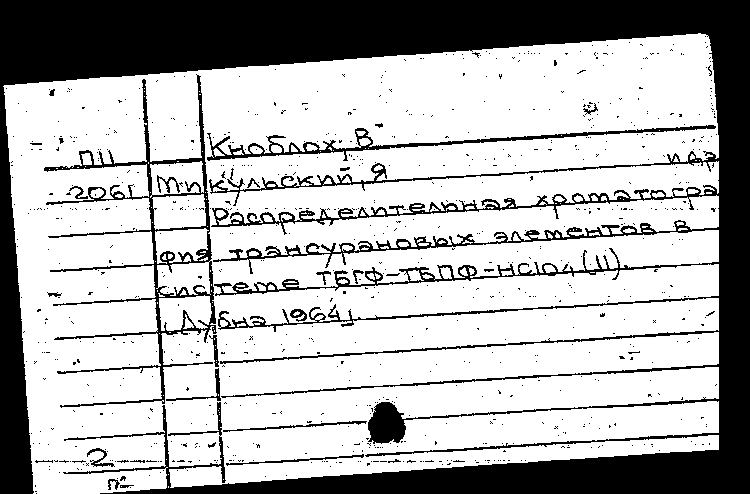 П11 Кноблох, В
2061 Микульский, Я и др
Распределительная хроматогра
фия трансурановых элементов в
системе ТБГФ-ТБПФ-HClO4 (II).
[Дубна, 1964].
2